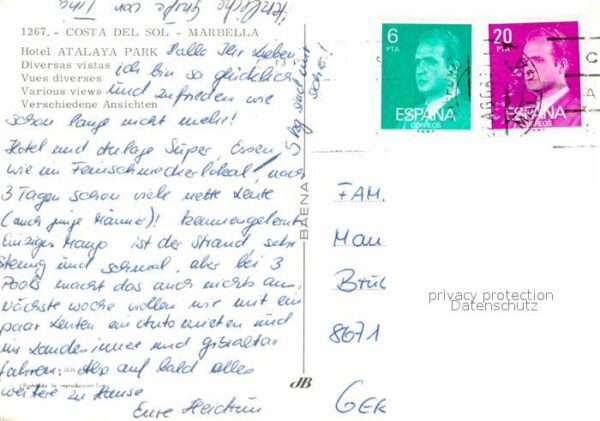 1267. - COSTA DEL SOL - MARBELLA
Hotel ATALAYA PARK
Diversas vistas
Vues diverses
Various views
Verschiedene Ansichten
Hallo Ihr Lieben
ich bin so glücklich
und zufrieden wie
schon lange nicht mehr!
Hotel und Anlage Super, Essen
wie im Feinschmeckerlokal, nach
3 Tagen schon viele nette Leute
(auch junge Männer)! kennengelernt
Einziges Manko ist der Strand, sehr
steinig und schmal, aber bei 3
Pools macht das auch nichts aus.
Nächste Woche wollen wir mit ein
paar Leuten ein Auto mieten und
ins Landesinnere und Gibraltar
fahren. Also auf bald alles
weitere zu Hause
Eure Heidrun
Herzliche Grüße von
(Prohibida la reproducción)
BAENA
dB
6
PTA
ESPAÑA
CORREOS
20
PTA
ESPAÑA
CORREOS
FAM.
Mau
Brü
8671
GER
privacy protection
Datenschutz